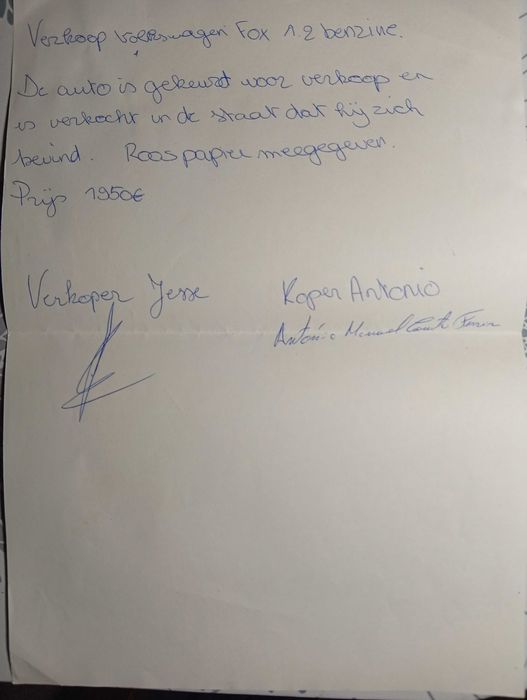 Verkoop volkswagen Fox 1.2 benzine.
De auto is gekeurd voor verkoop en
is verkocht in de staat dat hij zich
bevind. Roos papier meegegeven.
Prijs 1950€
Verkoper Jesse
Koper Antonio
António Manuel